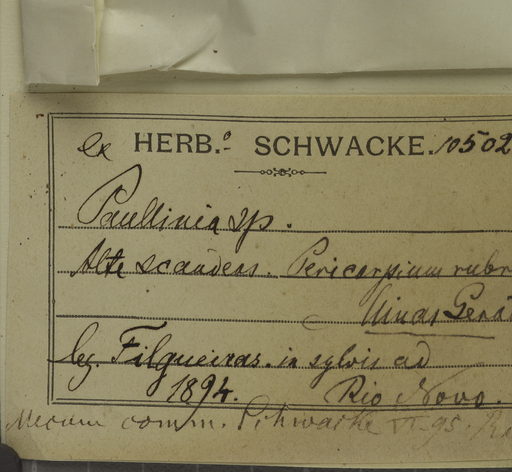 ex HERB.º SCHWACKE. 10502
Paullinia sp.
Alte scandens. Pericarpium rubr
Minas Gera
leg. Filgueiras. in sylvis ad
1894. Rio Novo.
Mecum comm. Schwacke VI-95.